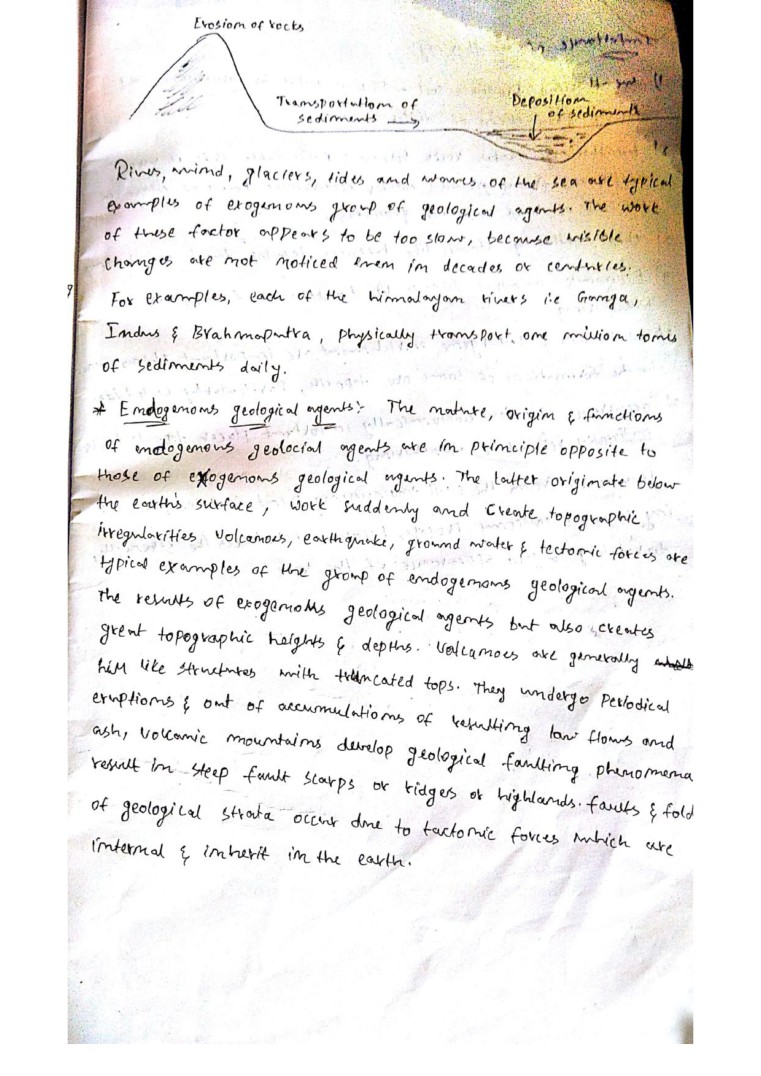 Erosion of rocks
Transportation of
sediments
Deposition
of sediments
Rives, wind, glaciers, tides and waves of the sea are typical
examples of exogenous group of geological agents. The work
of these factor appears to be too slow, because visible
changes are not noticed even in decades or centuries.
For examples, each of the himalayan rivers i.e Ganga,
Indus & Brahmaputra, physically transport one million tonis
of sediments daily.
* Endogenous geological agents:- The nature, origin & functions
of endogenous geolocial agents are in principle opposite to
those of exogenous geological agents. The latter originate below
the earth's surface, work suddenly and create topographic
irregularities volcanoes, earthquake, ground water & tectonic forces are
typical examples of the group of endogenous geological agents.
The results of exogenous geological agents but also creates
great topographic heights & depths. Volcanoes are generally
hill like structures with truncated tops. They undergo periodical
eruptions & out of accumulations of resulting lav flows and
ash, volcanic mountains develop geological faulting phenomena
result in steep fault scarps or ridges or highlands. faults & fold
of geological strata occur due to tactonic forces which are
internal & inherit in the earth.